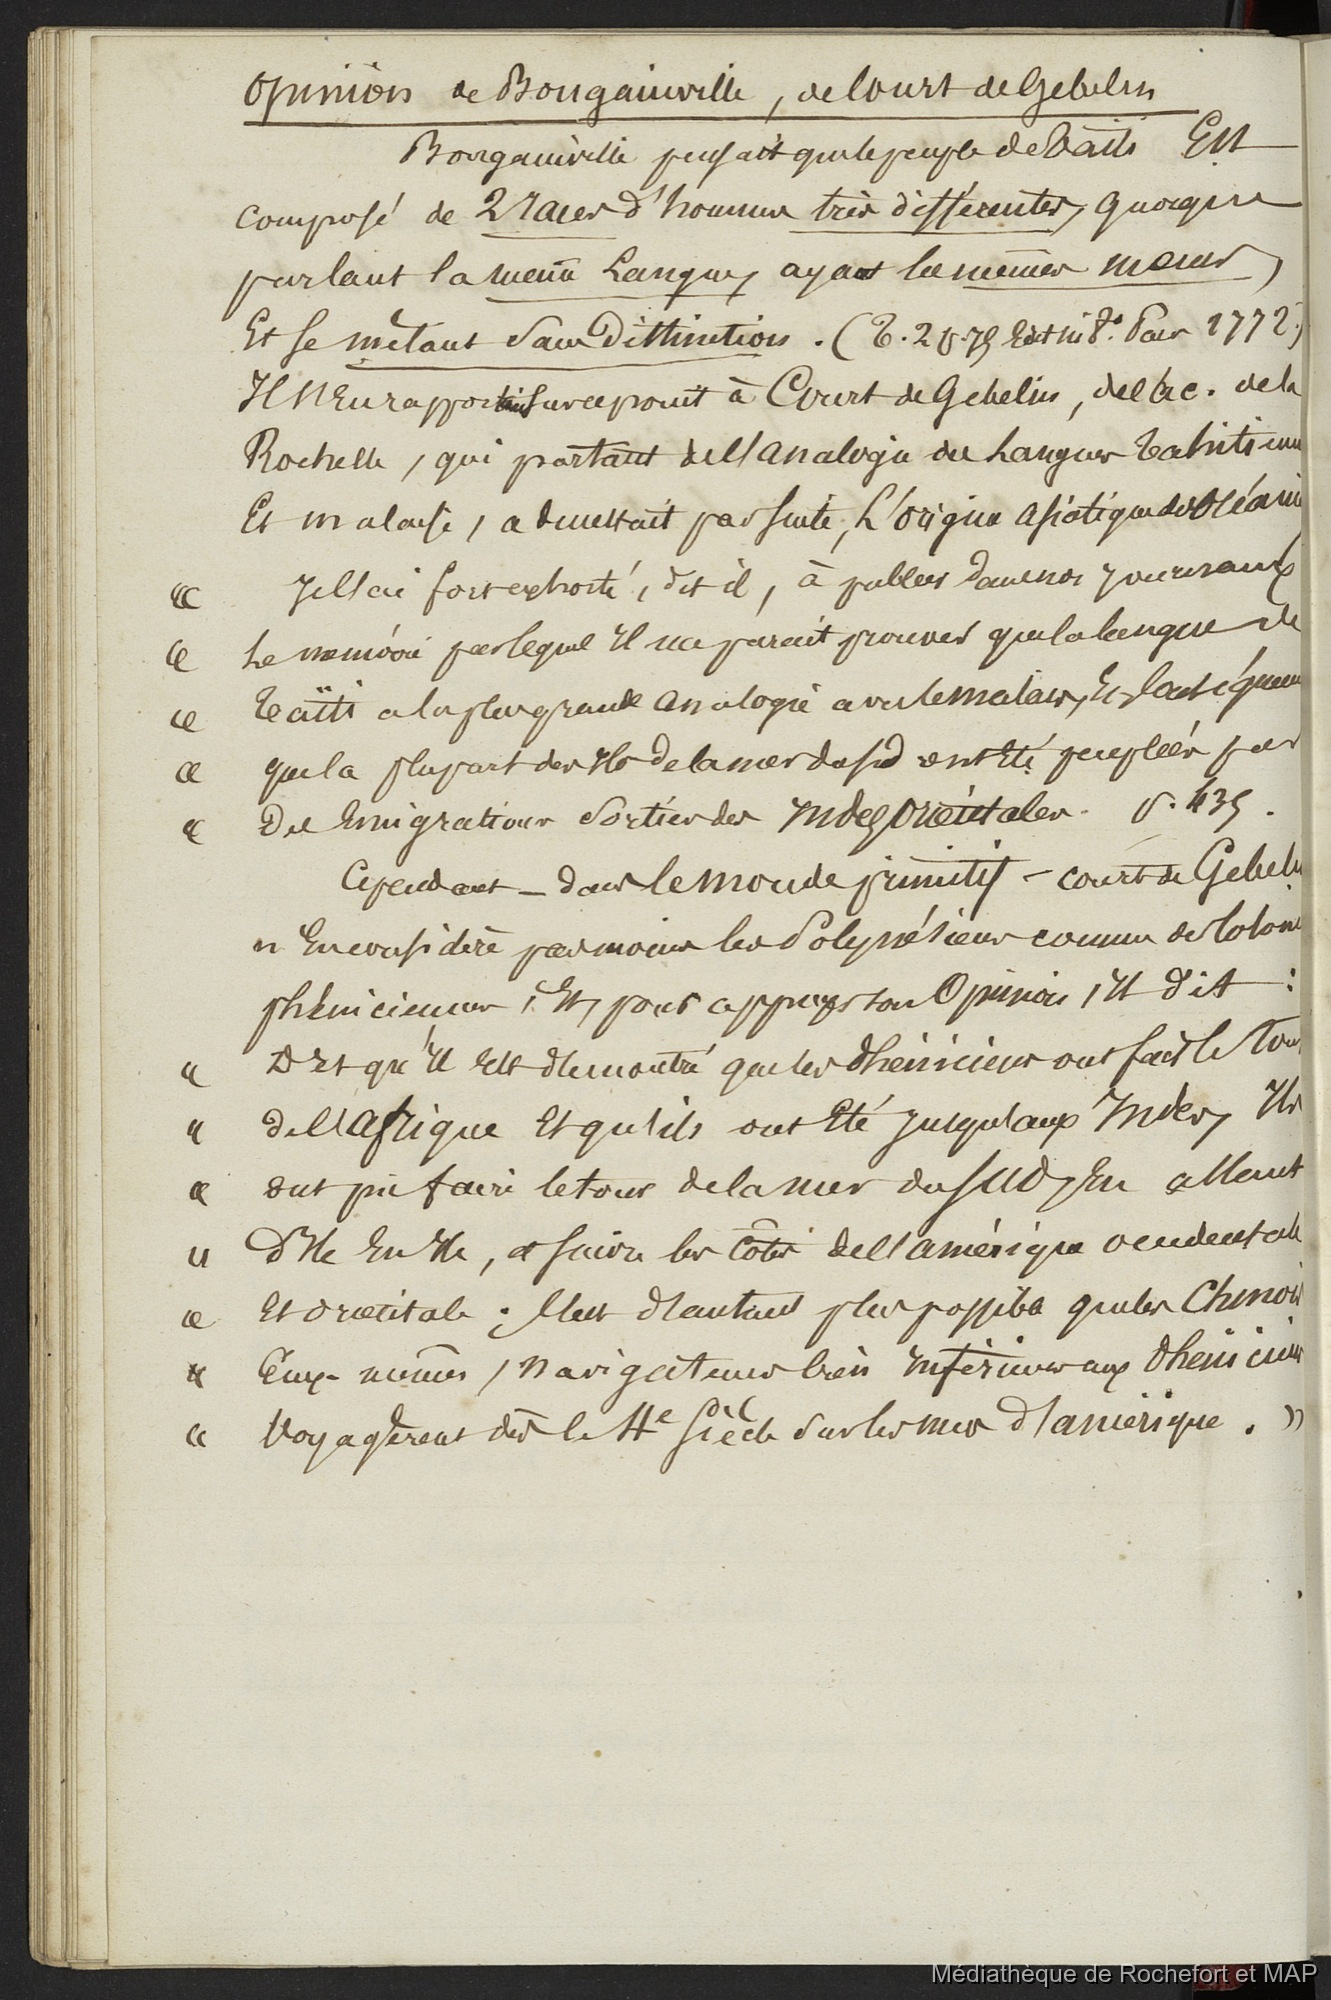 Opinion de Bougainville, de Court de Gebelin
Bougainville pensait que le peuple de Taïti Est
composé de 2 races d'hommes très différentes, quoique
parlant la même Langue, ayant les mêmes mœurs,
Et se mêlant sans Distinction. (T. 2 p. 79 Edit in 8º. Paris 1772.)
Il s'en rapportait sur ce point à Court de Gebelin, de l'ac. de la
Rochelle, qui partant de l'analogie des Langues Tahitienne
Et malaise, admettait par suite, L'origine asiatique des Océanie
« Je l'ai fort exhorté, dit il, à publier dans nos journaux
« Le mémoire par lequel Il me parait prouver que la langue de
« Taïti a la plus grande analogie avec le malais, Et conséquem
« que la plupart des Iles de la mer du sud ont Eté peuplées par
« Des Emigrations Sorties des Indes Orientales. p. 435.
Cependant – dans le monde primitif – court de Gebelin
n'En considère pas moins les Polynésiens comme des Colonies
phéniciennes, Et, pour appuyer son Opinion, Il dit :
« Dès qu'Il Est démontré que les Phéniciens ont fait le Tour
« de l'afrique Et qu'ils ont Eté jusqu'aux Indes, Ils
« ont pu faire le tour de la mer du sud, En allant
« d'Ile En Ile, et suivre les Côtes de l'amérique occidentale
« Et orientale ; c'est d'autant plus possible que les Chinois
« Eux-mêmes, navigateurs bien inférieurs aux Phéniciens
« Voyagèrent dès le 4e Siècle sur les mers d'amérique. »
Médiathèque de Rochefort et MAP